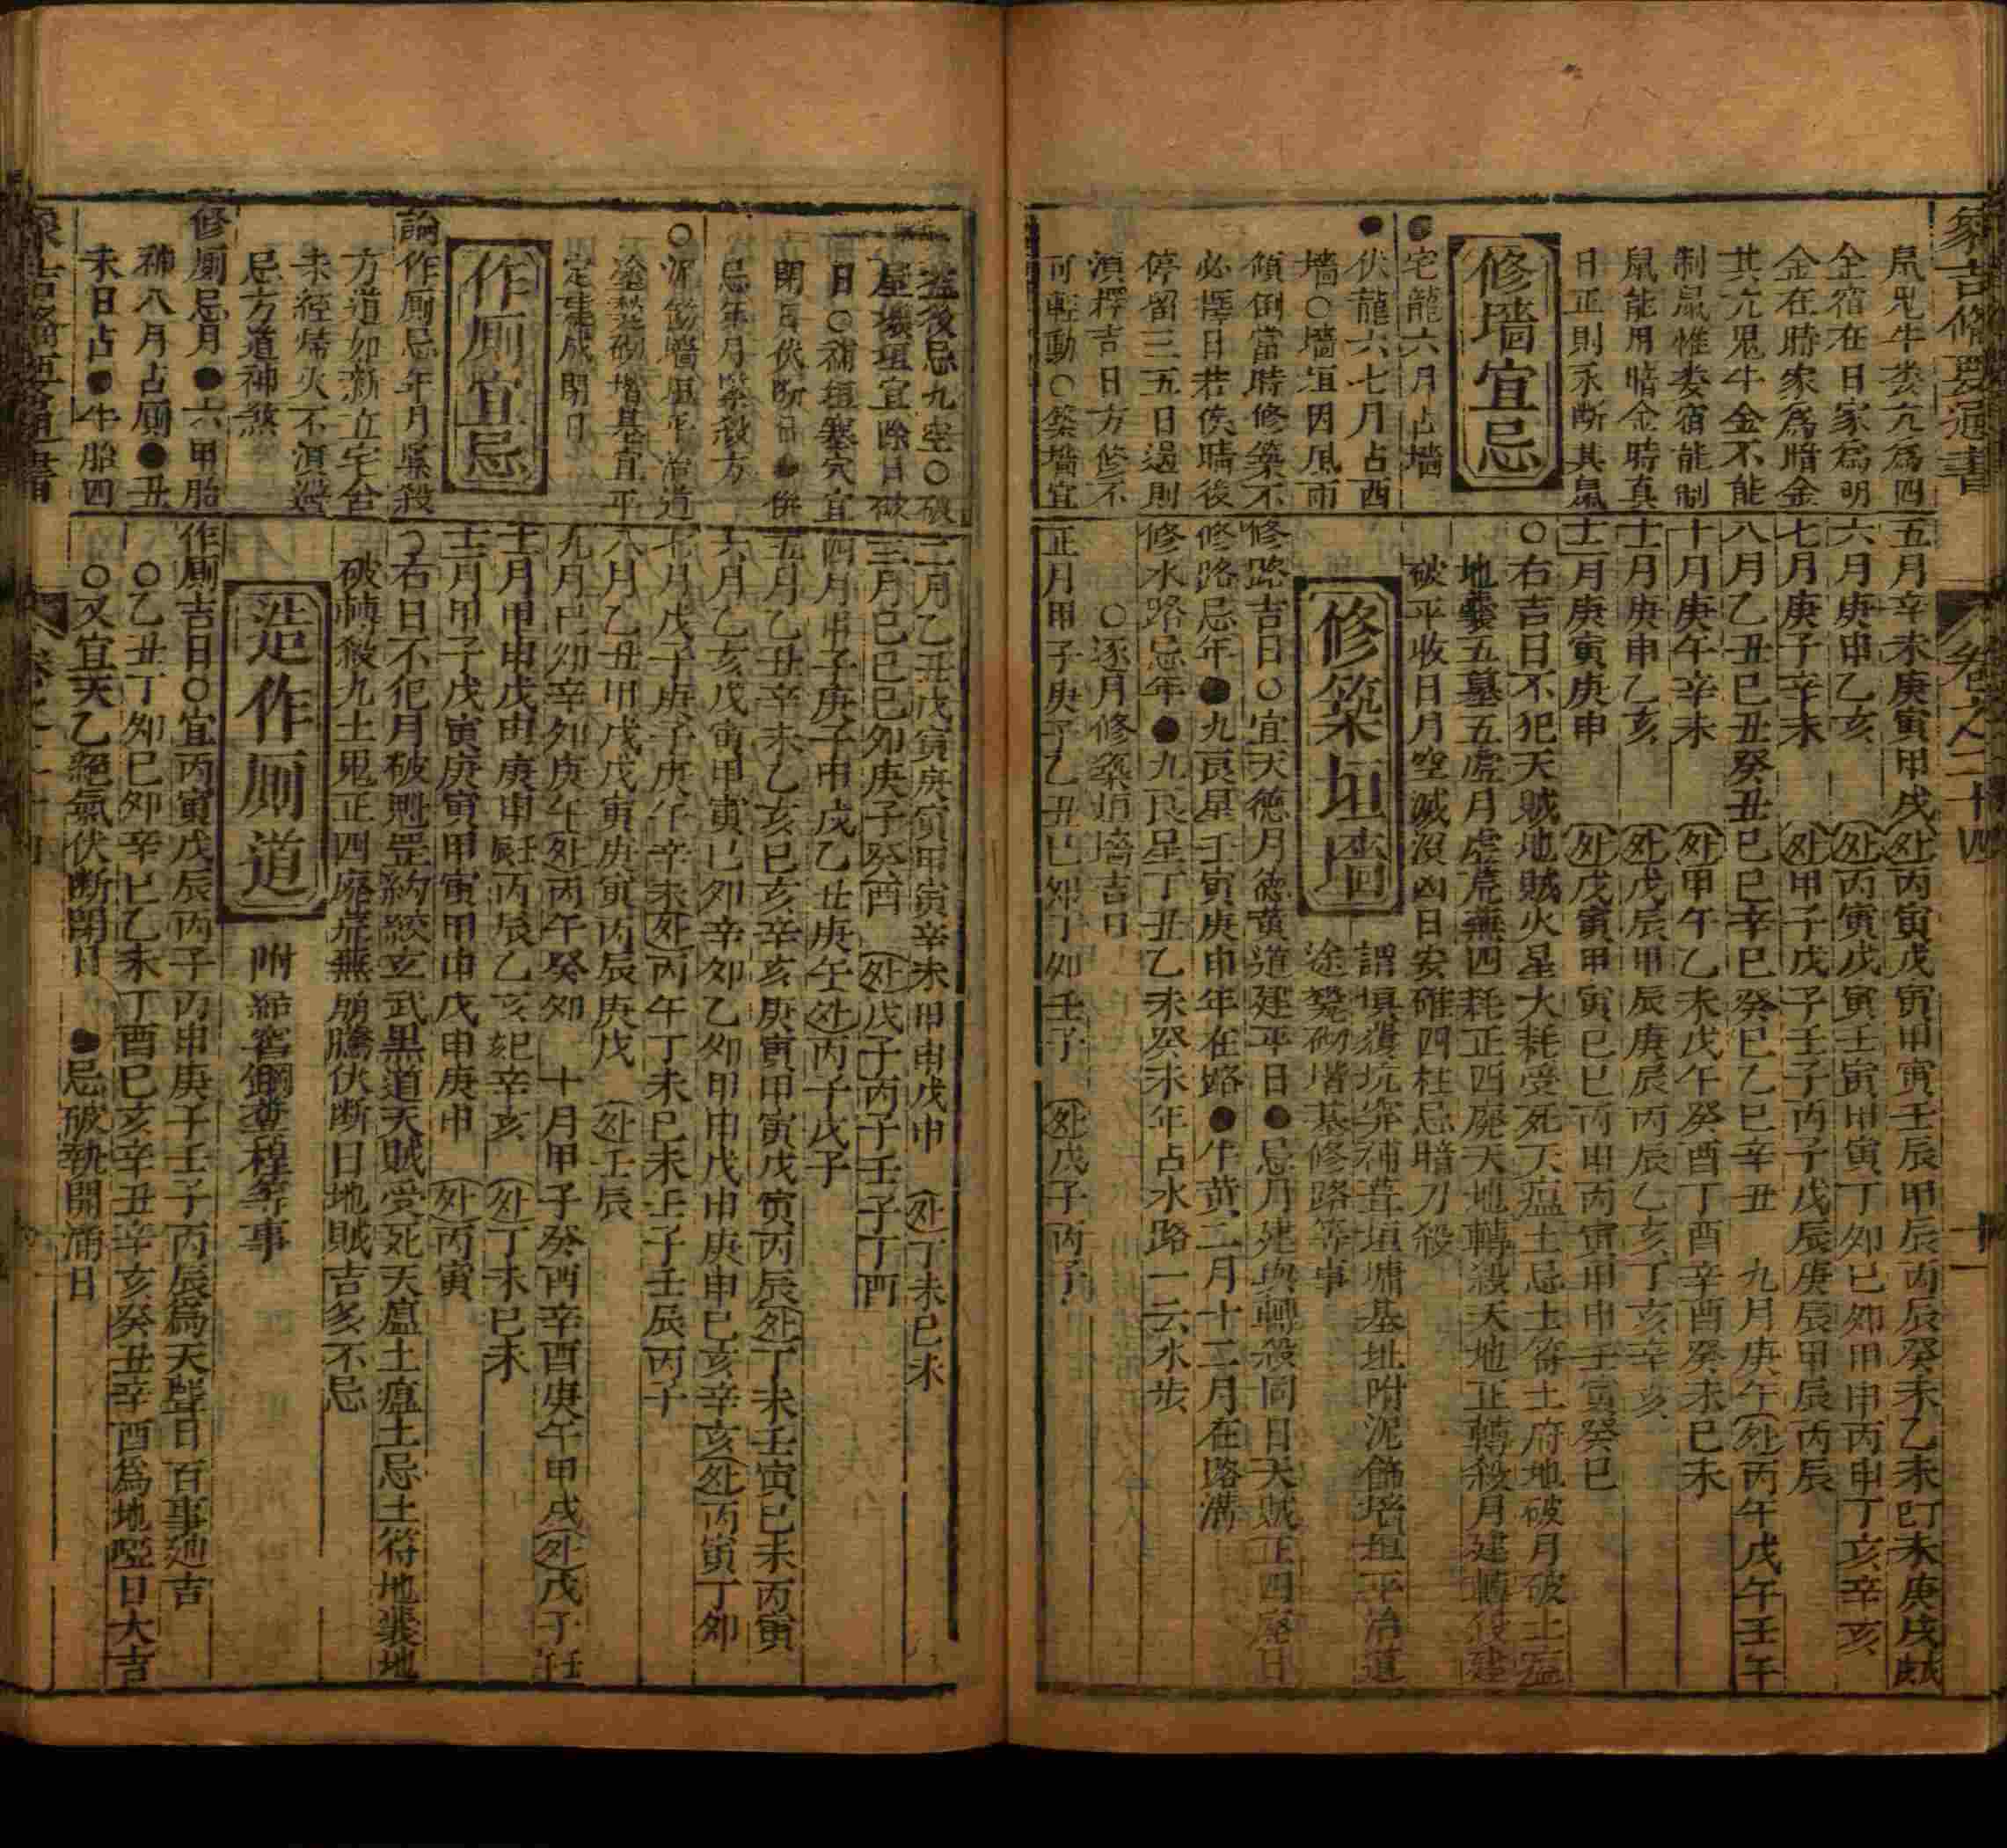 象吉修要通書
卷之二十四
十一
鼠鬼牛婁亢爲四
金宿在日家爲明
金在時家爲暗金
其亢鬼牛金不能
制鼠惟婁宿能制
鼠能用暗金時真
日正則永斷其鼠
修墻宜忌
●宅龍六月占墻
●伏龍六七月占西
墻○墻垣因風雨
傾倒當時修築不
必擇日若俟晴後
停留三五日過則
湏擇吉日方修不
可輕動○築墻宜
五月辛未庚寅甲戌外丙寅戊寅甲寅壬辰甲辰丙辰癸未乙未
六月庚申乙亥外丙寅戊寅壬寅甲寅丁夘己夘甲申丙申丁亥辛亥
七月庚子辛未外甲子戊子壬子丙子戊辰庚辰甲辰丙辰
八月乙丑巳丑癸丑巳巳辛巳癸巳乙巳辛丑 九月庚午外丙午戊午壬午
十月庚午辛未外甲午乙未戊午癸酉丁酉辛酉癸未巳未
十一月庚申乙亥外戊辰甲辰庚辰丙辰乙亥丁亥辛亥
十二月庚寅庚申外戊寅甲寅巳巳丙申丙寅甲申壬寅癸巳
○右吉日不犯天賊地賊火星大耗受死天瘟土忌土符土府地破月破土瘟
地囊五墓五虚月虚荒蕪四耗正四廢天地轉殺天地正轉殺月建轉殺建
破平收日月空滅没凶日安確四柱忌暗刀殺
修築垣墻
謂填獲坑穽補葺垣墉基址附泥飾墻垣平治道
途甃砌堦基修路等事
修路吉日○宜天德月德黃道建平日●忌月建與轉殺同日天賊正四廢日
修路忌年●九良星壬寅庚申年在路●牛黃二月十二月在路溝
修水路忌年●九良星丁丑乙未癸未年占水路一云水步
○逐月修築垣墻吉日
正月甲子庚子乙丑巳夘丁夘壬子外戊子丙子
盖後忌九空○破
屋壞垣宜除日破
日○補垣塞穴宜
閉日伏断日●俱
忌年月緊殺方
○泥飭墻垣平治道
塗甃砌堦基宜平
定建成閉日
作厠宜忌
論作厠忌年月緊殺
方道如新立宅舍
未經歸火不湏避
忌方道神煞
修厠忌月●六甲胎
神八月占厠●丑
未日占●牛胎四
二月乙丑戊寅庚寅甲寅辛未甲申戊申外丁未己未
三月己巳己夘庚子癸酉外戊子丙子壬子丁酉
四月甲子庚子甲戌乙丑庚午外丙子戊子
五月乙丑辛未乙亥巳亥辛亥庚寅甲寅戊寅丙辰外丁未壬寅己未丙寅
六月乙亥戊寅甲寅己夘辛夘乙夘甲申戊申庚申巳亥辛亥外丙寅丁夘
七月戊子庚子庚午辛未外丙午丁未巳未壬子壬辰丙子
八月乙丑甲戌戊寅庚寅丙辰庚戌外壬辰
九月巳夘辛夘庚午外丙午癸夘 十月甲子癸酉辛酉庚午甲戌外戊子
十一月甲申戊申庚申丙辰乙亥辛亥外丁未己未
十二月甲子戊寅庚寅甲寅甲申戊申庚申外丙寅
○右日不犯月破魁罡約絞玄武黒道天賊受死天瘟土瘟土忌土符地囊地
破轉殺九土鬼正四廢荒蕪崩騰伏断日地賊吉多不忌
造作厠道
作厠吉日○宜丙寅戊辰丙子丙申庚子壬子丙辰爲天聾日百事廸吉
○乙丑丁夘巳夘辛巳乙未丁酉巳亥辛丑辛亥癸丑辛酉爲地啞日大吉
○又宜天乙絕氣伏断閉日 ●忌破執開滿日